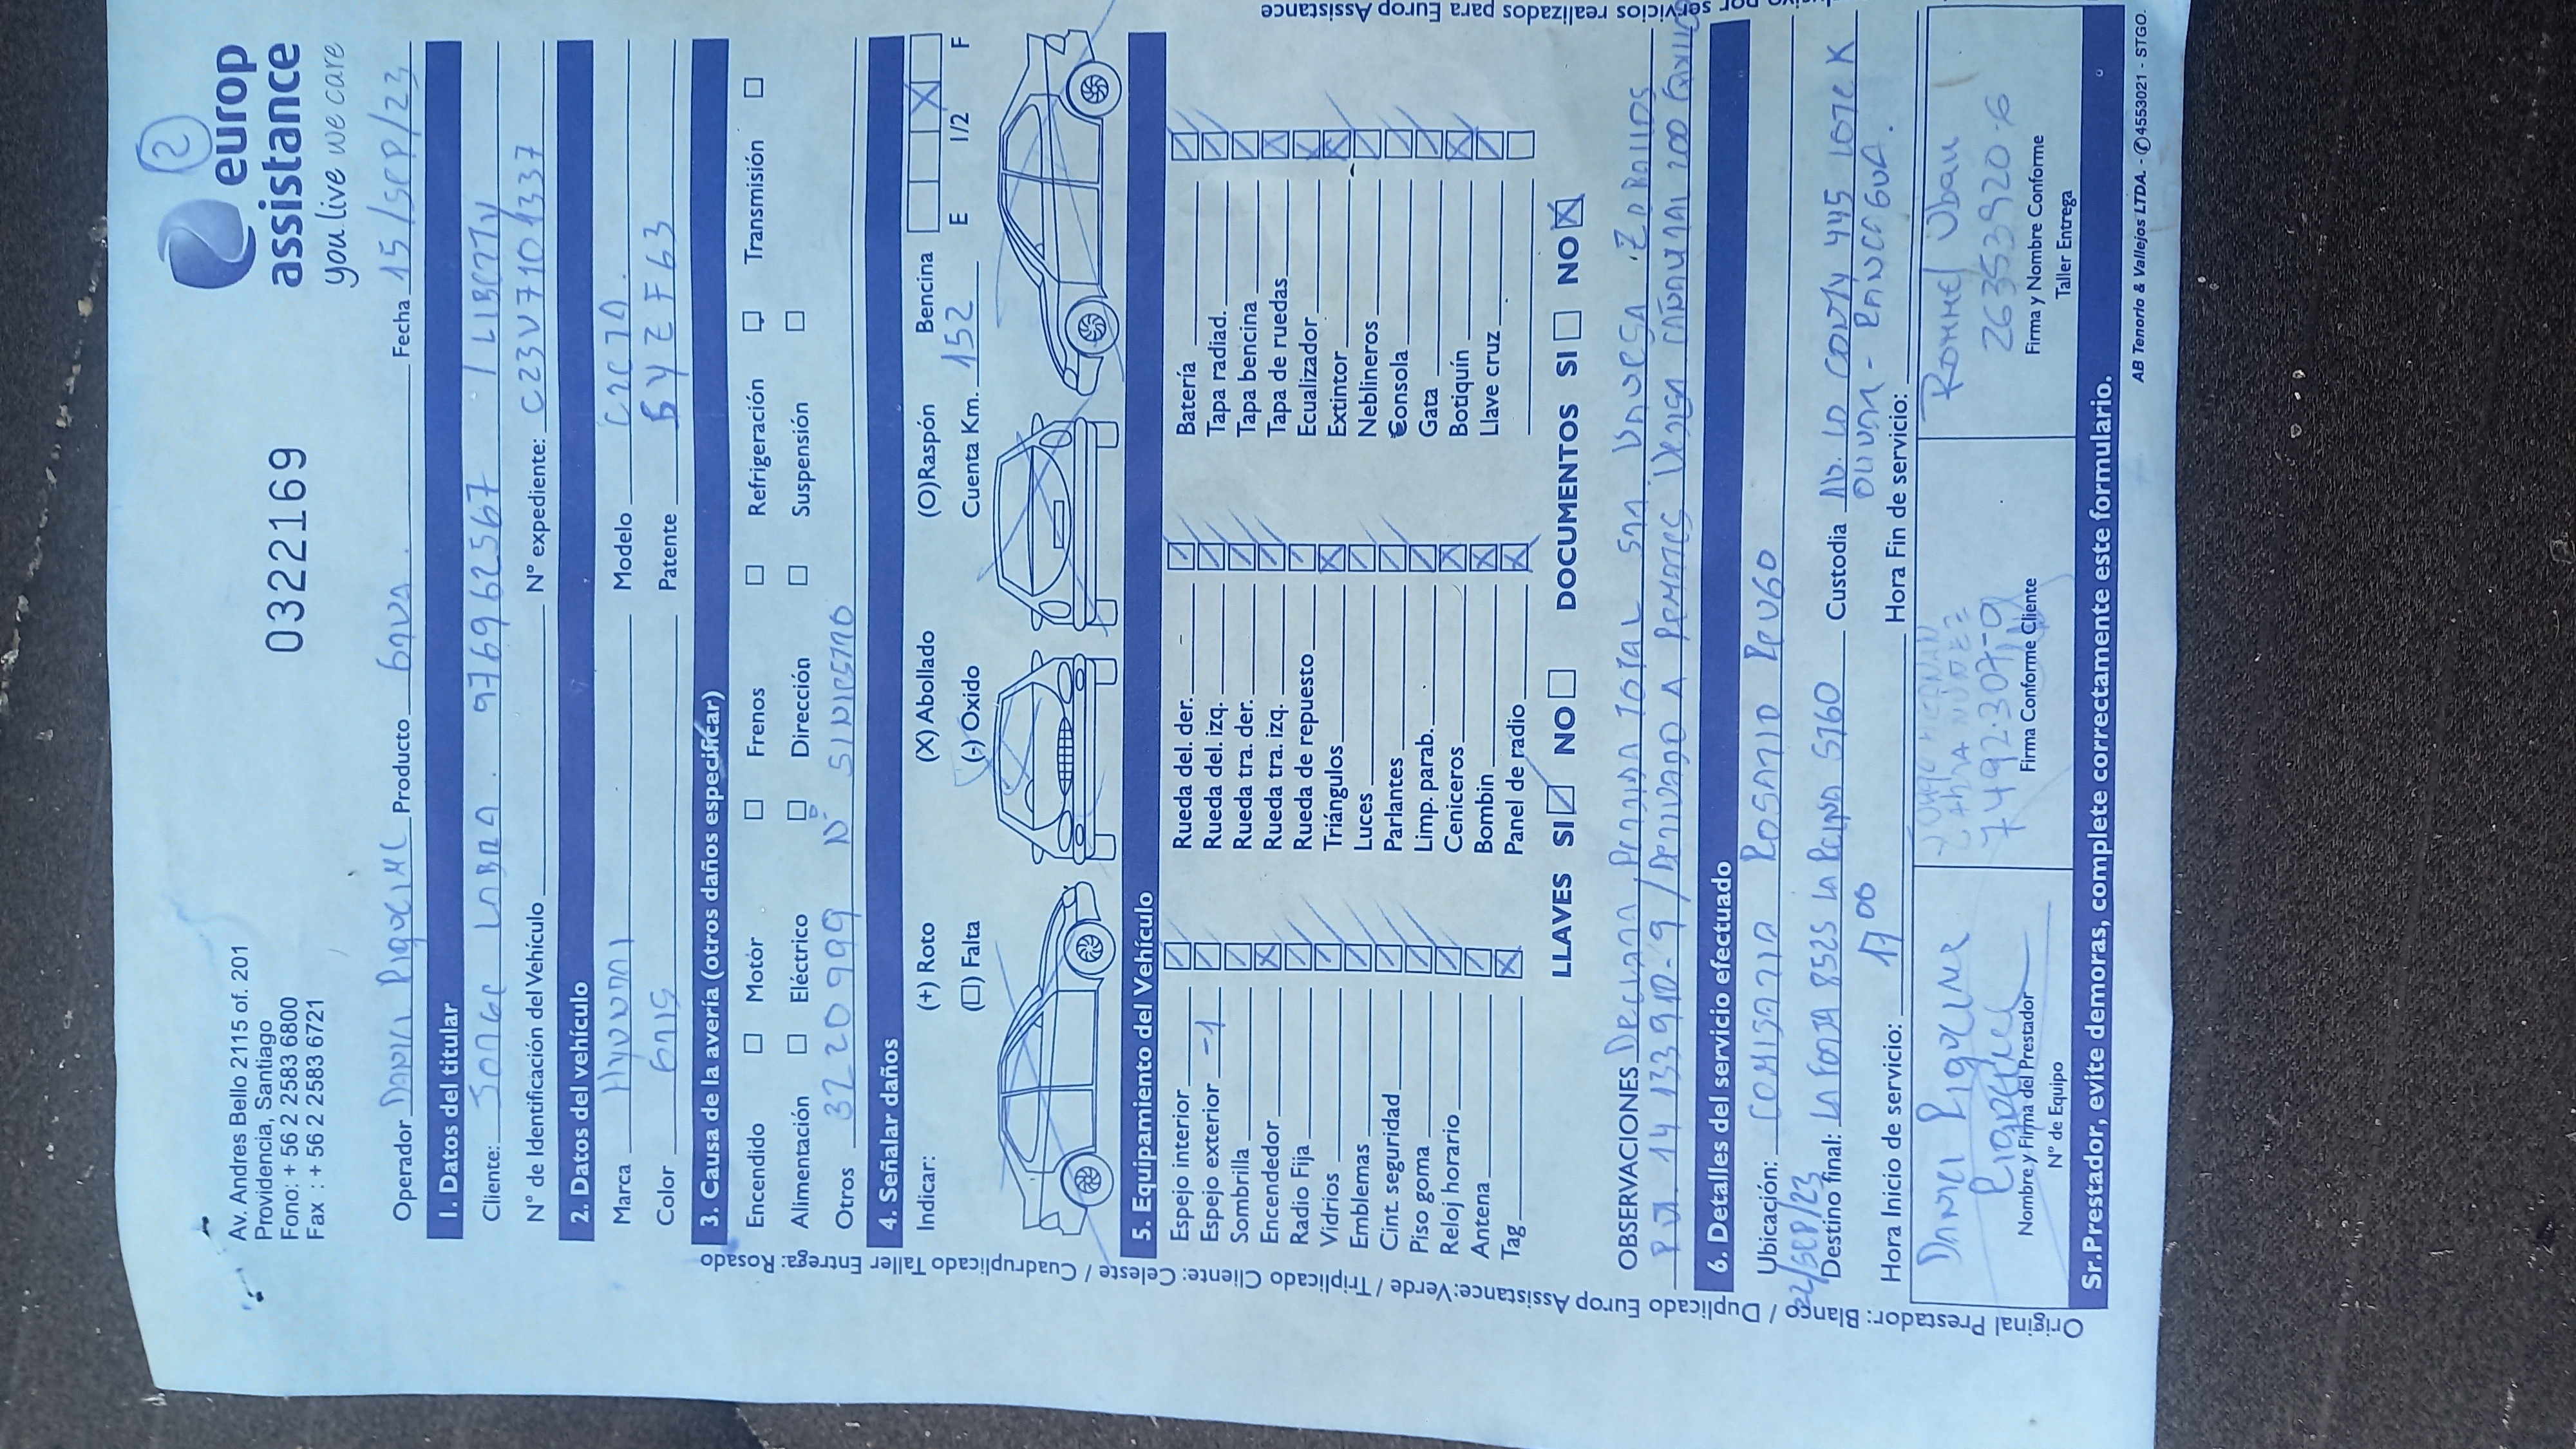 Av. Andres Bello 2115 of. 201
Providencia, Santiago
Fono: + 56 2 2583 6800
Fax : + 56 2 2583 6721
0322169
2
europ
assistance
you live we care
Operador Producto Grua. Fecha 15/SEP/23
1. Datos del titular
Cliente: JORGE LABRA. 976962567 / LIBERTY
N° de Identificación del Vehículo N° expediente: C23V7101337
2. Datos del vehículo
Marca HYUNDAI Modelo CRETA.
Color GRIS Patente
3. Causa de la avería (otros daños especificar)
Encendido Motor Frenos Refrigeración Transmisión
Alimentación Eléctrico Dirección Suspensión
Otros 3220999 N° SINIESTRO
4. Señalar daños
Indicar: (+) Roto (X) Abollado (O) Raspón Bencina E 1/2 F
(□) Falta (-) Oxido Cuenta Km. 152
5. Equipamiento del Vehículo
Espejo interior Rueda del. der. Batería
Espejo exterior -1 Rueda del. izq. Tapa radiad.
Sombrilla Rueda tra. der. Tapa bencina
Encendedor Rueda tra. izq. Tapa de ruedas
Radio Fija Rueda de repuesto Ecualizador
Vidrios Triángulos Extintor
Emblemas Luces Neblineros
Cint. seguridad Parlantes Consola
Piso goma Limp. parab. Gata
Reloj horario Ceniceros Botiquín
Antena Bombin Llave cruz
Tag Panel de radio
LLAVES SI NO DOCUMENTOS SI NO
OBSERVACIONES PERDIDA TOTAL
14 133 910-9 / DERIVADO A REMATES
6. Detalles del servicio efectuado
Ubicación: COMISARIA ROSARIO
22/SEP/23
Destino final: Custodia AV. LO 445 LOTE K
- RANCAGUA.
Hora Inicio de servicio: 17 00 Hora Fin de servicio:
DANIEL
Nombre y Firma del Prestador
N° de Equipo
7492307-9
Firma Conforme Cliente
Rommel
26353920-6
Firma y Nombre Conforme
Taller Entrega
Sr. Prestador, evite demoras, complete correctamente este formulario.
AB Tenorio & Vallejos LTDA. - ✆4553021 - STGO.
Original Prestador: Blanco / Duplicado Europ Assistance: Verde / Triplicado Cliente: Celeste / Cuadruplicado Taller Entrega: Rosado
por servicios realizados para Europ Assistance